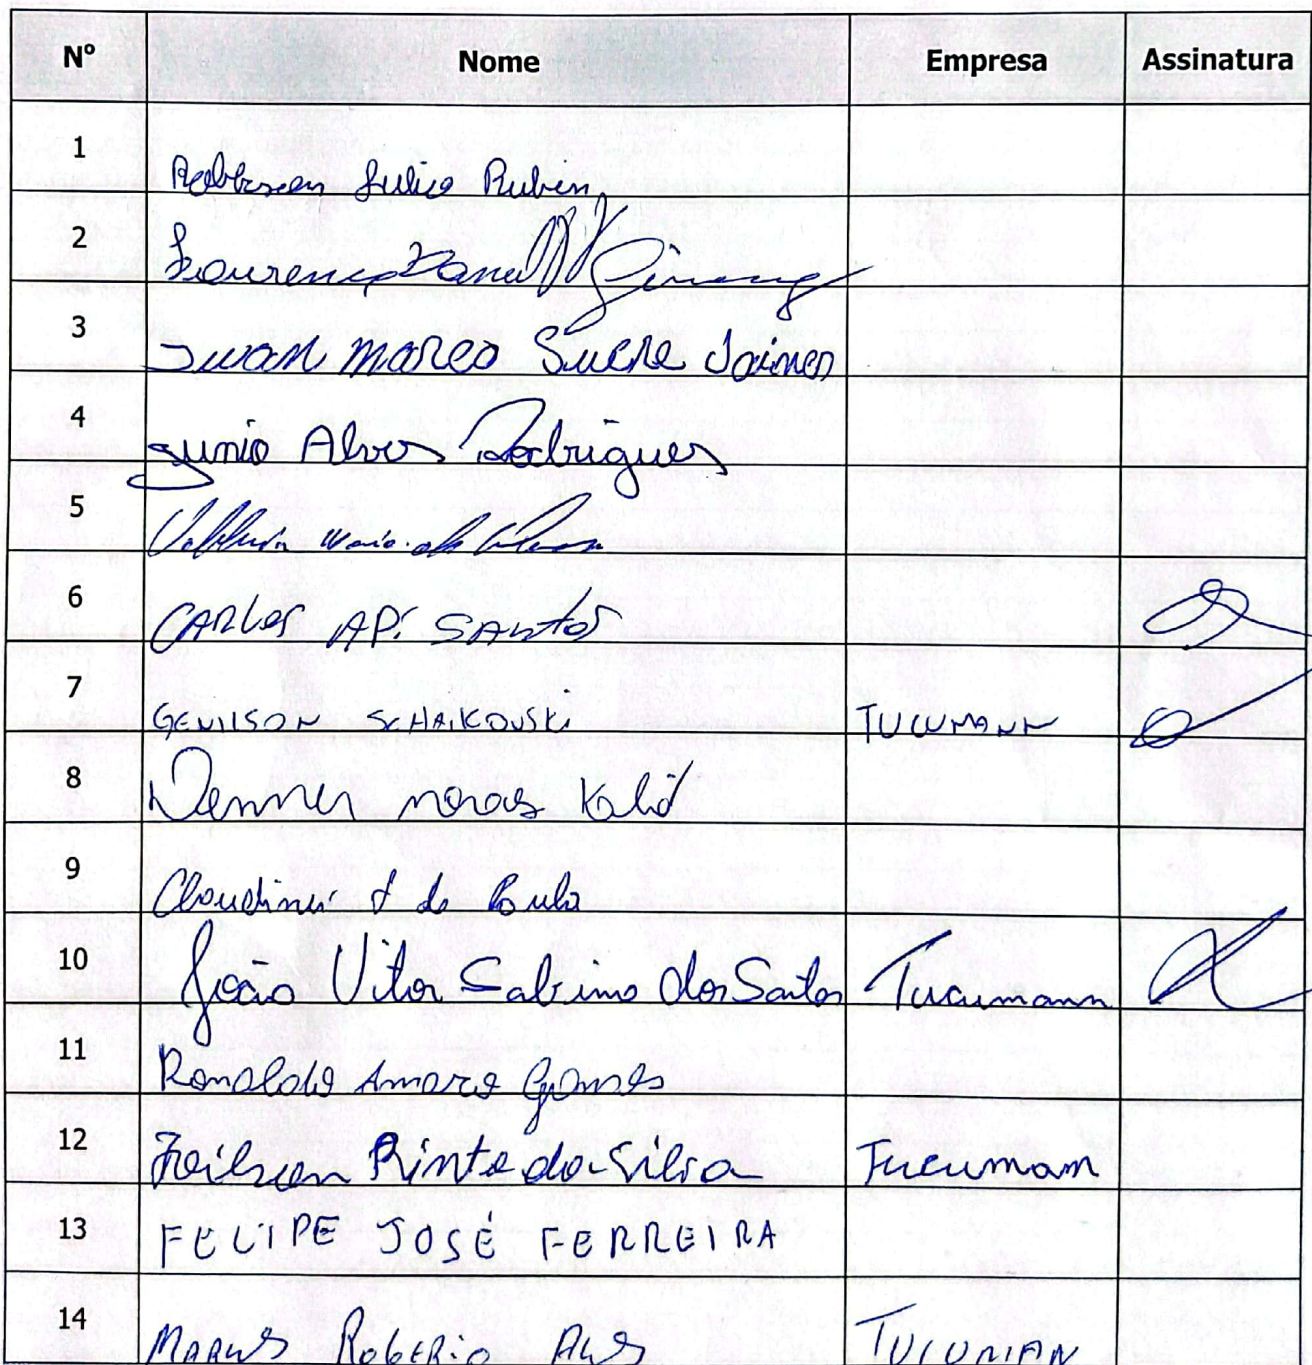 Nº Nome Empresa Assinatura
1 Robbson Julio Rubin
2 Lourenço Daniel Gimenez
3 Juan Marco Sucre Jaimes
4 Junio Alves Rodrigues
5 da
6 CARLOS AP. SANTOS
7 GENILSON SCHAIKOVSKI TUCUMANN
8 Denner morais
9 Claudinei A de Paula
10 João Vitor Sabino dos Santos Tucumann
11 Ronaldo Amaro Gomes
12 Pinto da Silva Tucumam
13 FELIPE JOSÉ FERREIRA
14 MARCUS ROGERIO ALVES TUCUMAN